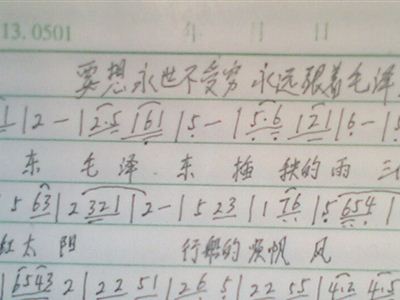 13.0501 年 月 日
要想永世不受穷 永远跟着毛泽
1|2 – |2·5 161|5 – |5·6 121|6 – |5
东 毛泽.东 插秧的雨 三
5 63|2 321|2 – |5 23|1 76|5 654|
红太阳 行船的顺帆风
|6543 2|22 51|26 5|22 55|4·2 4·5